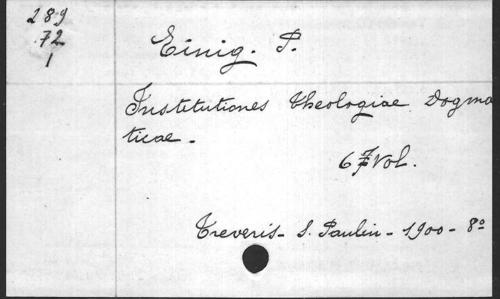 289
72
1
Einig. P.
Institutiones Theologiae Dogma
ticae.
6 Vol.
Treveris - S. Paulin - 1900 - 8º